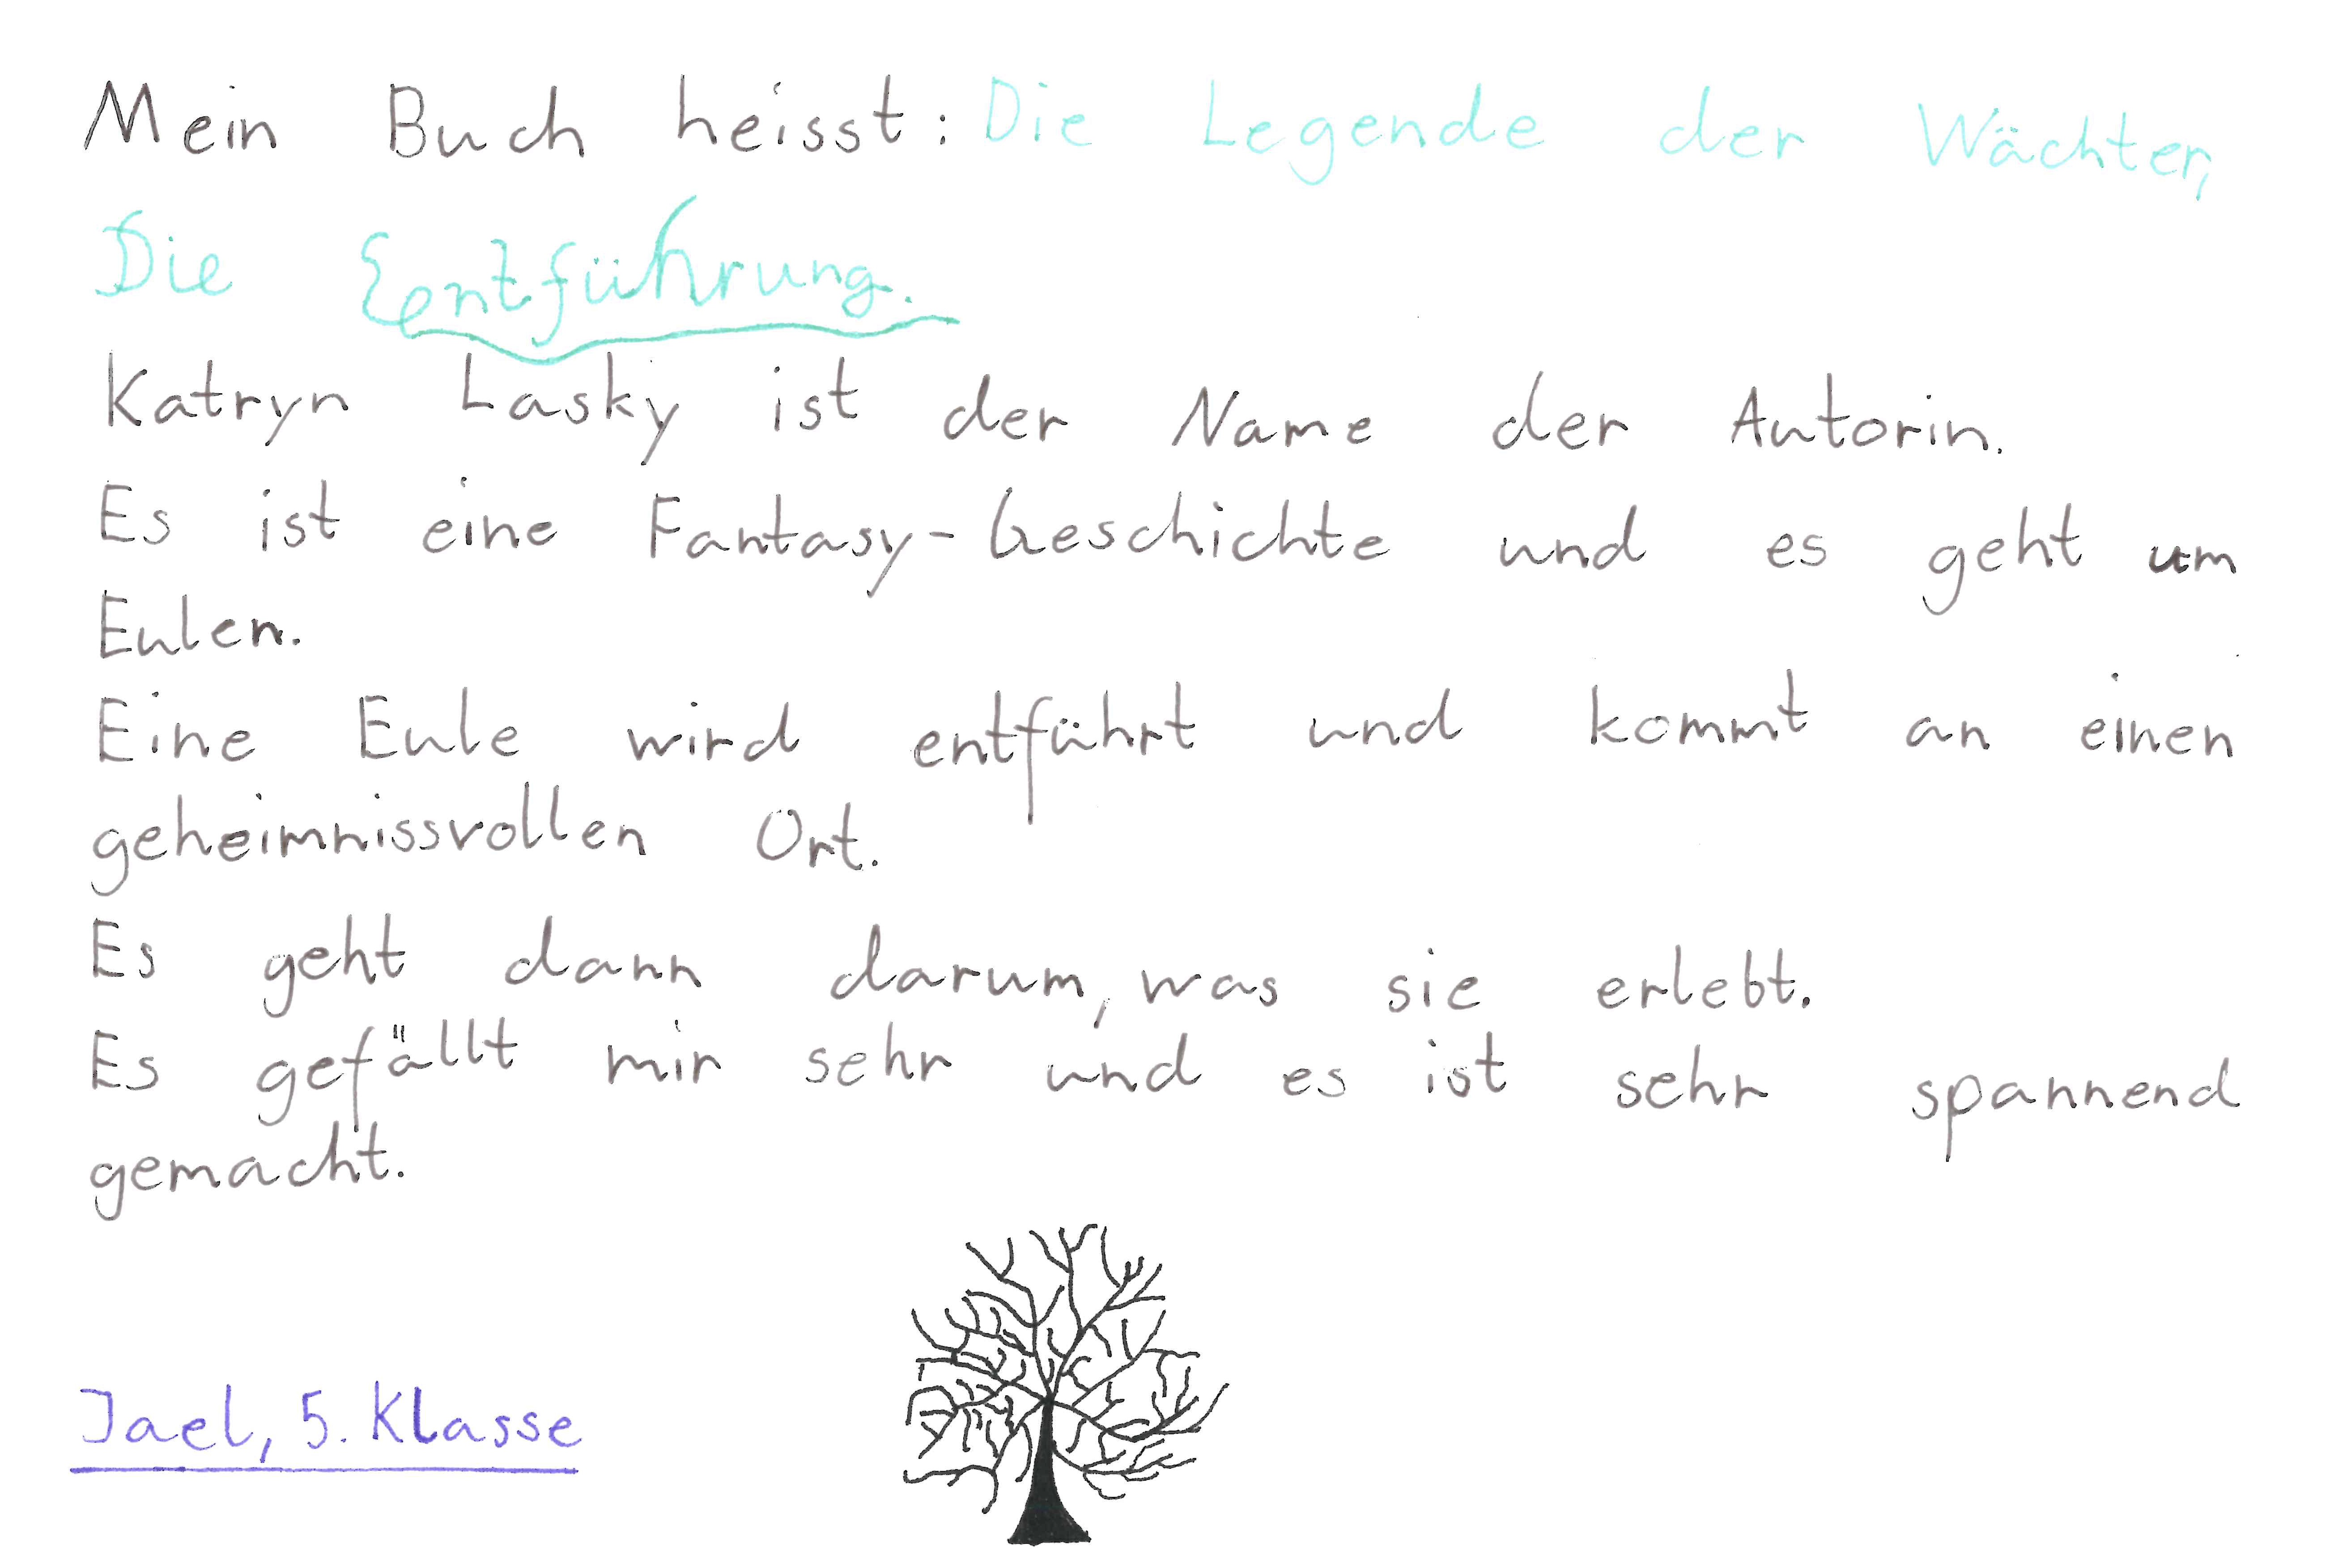 Mein Buch heisst: Die Legende der Wächter,
Die Entführung.
Katryn Lasky ist der Name der Autorin.
Es ist eine Fantasy-Geschichte und es geht um
Eulen.
Eine Eule wird entführt und kommt an einen
geheimnissvollen Ort.
Es geht dann darum, was sie erlebt.
Es gefällt mir sehr und es ist sehr spannend
gemacht.
Jael, 5. Klasse